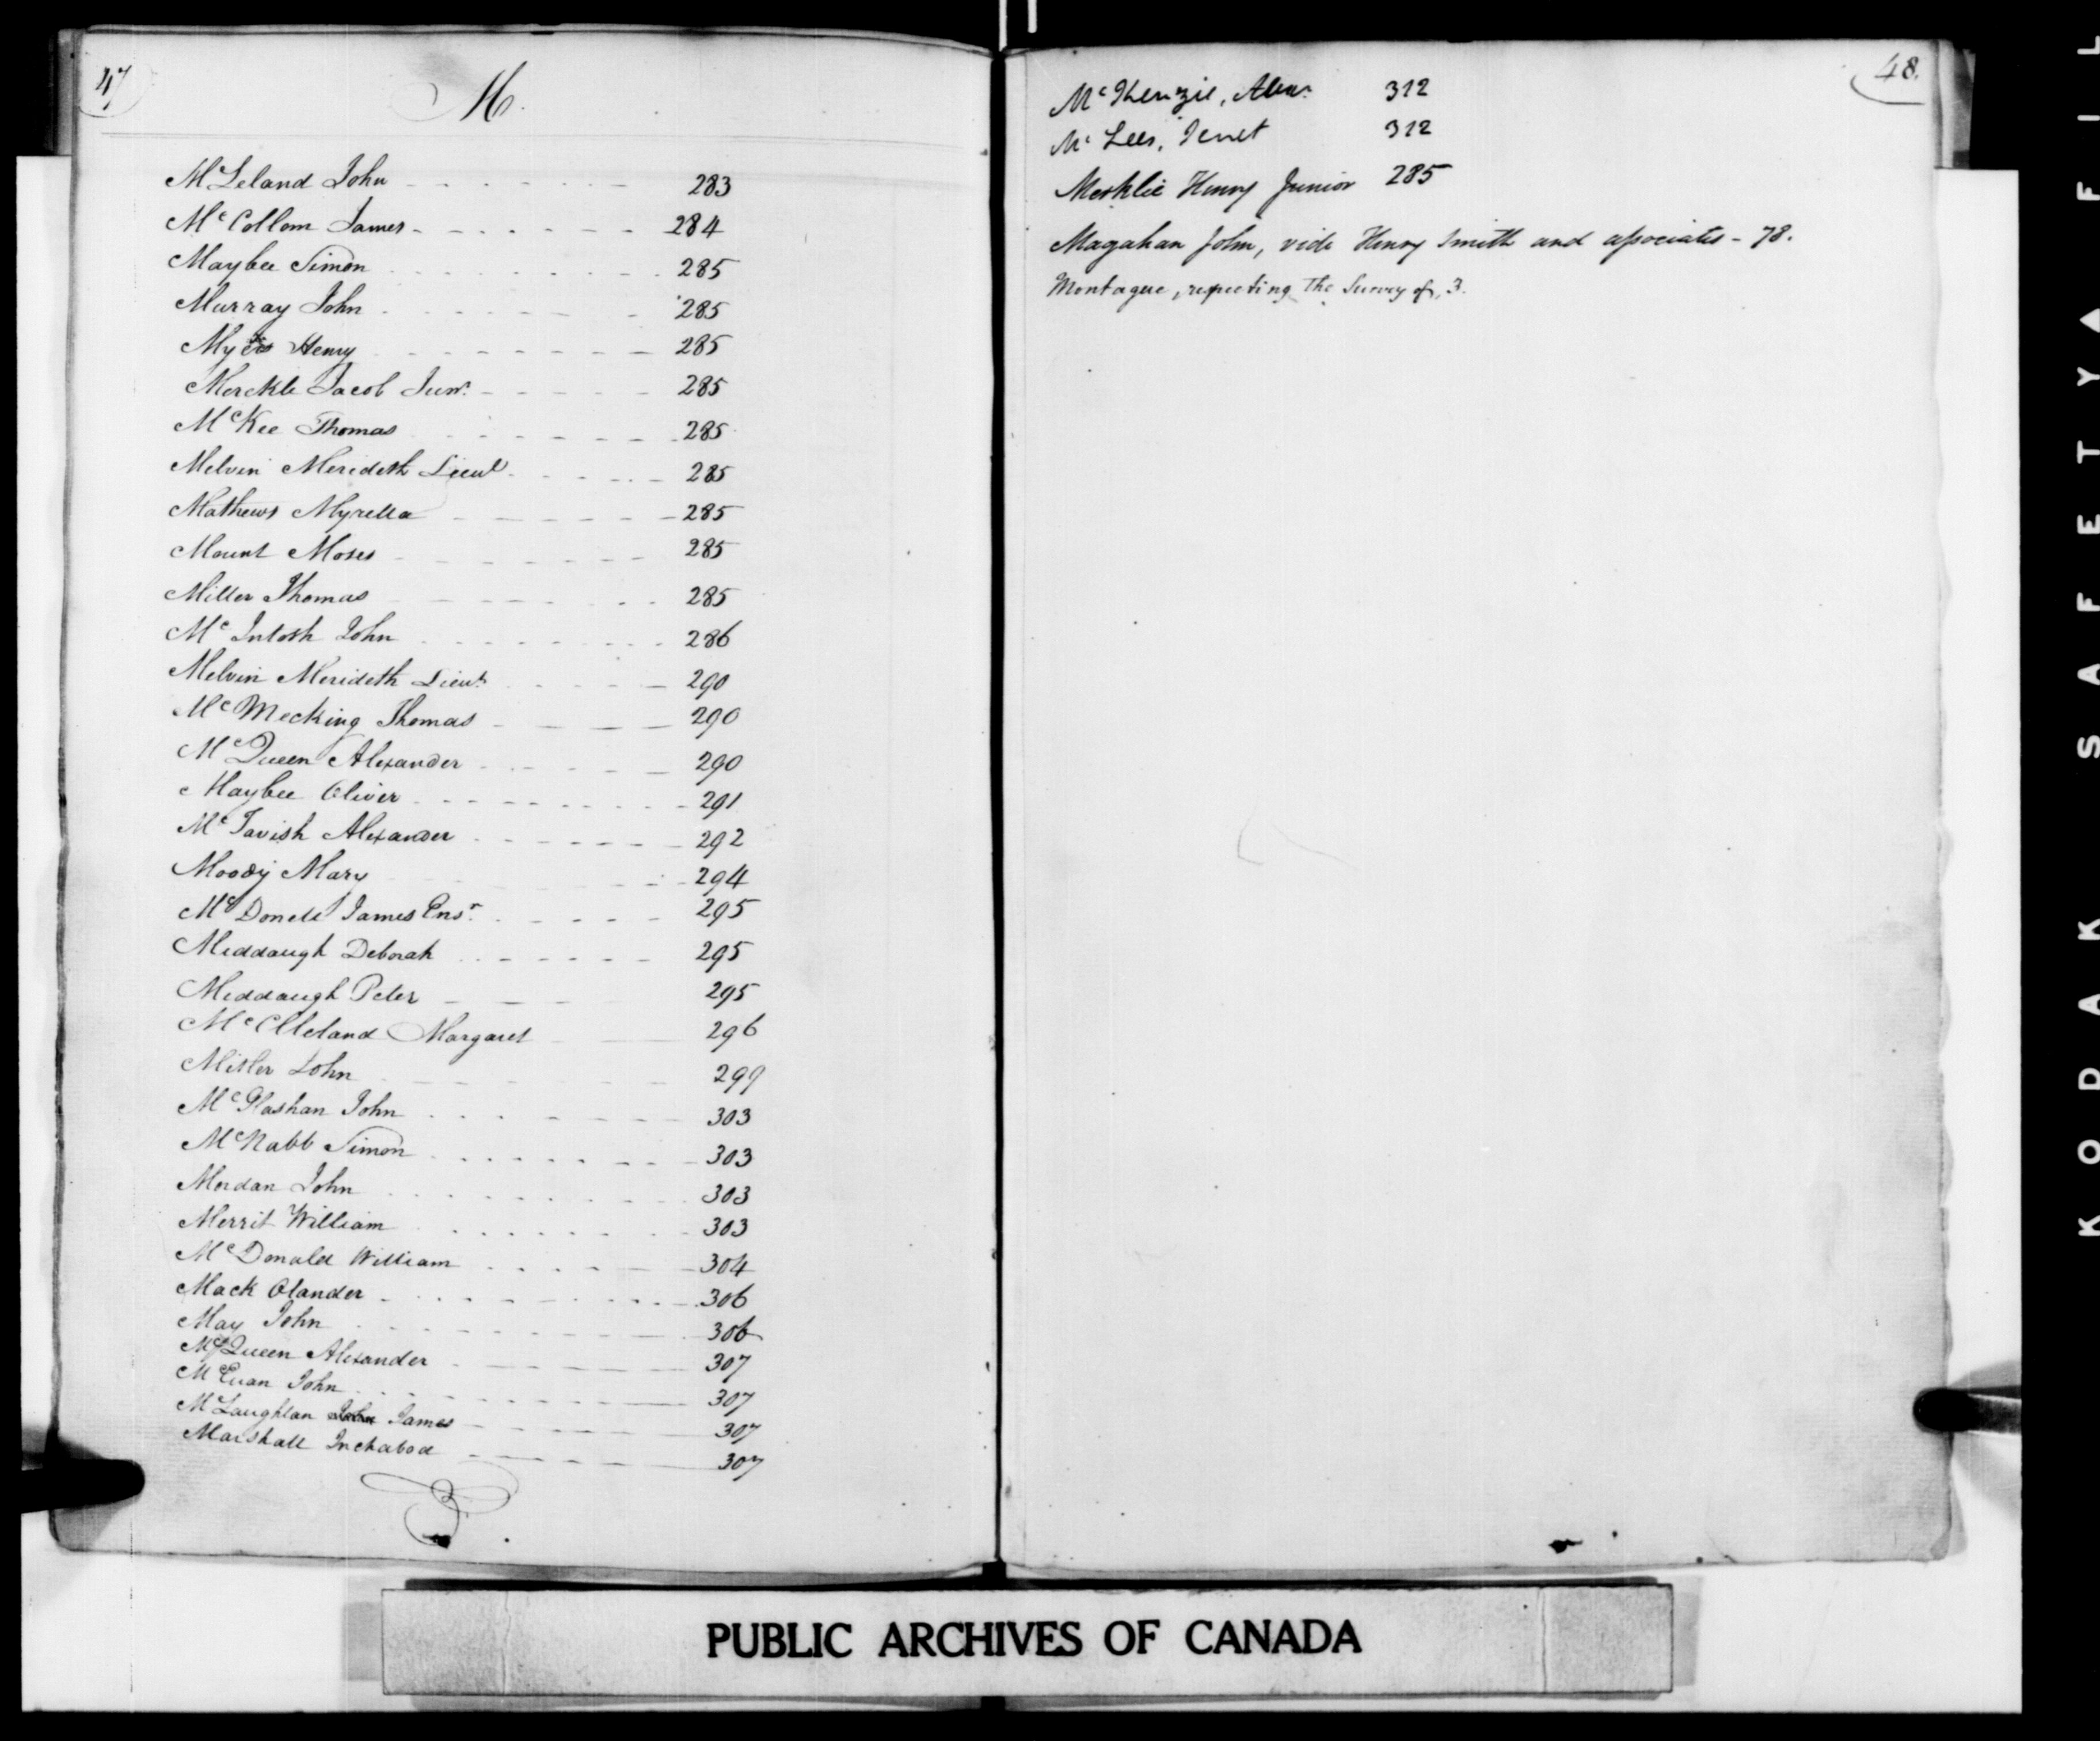 47
M.
McLeland John 283
McCollom James 284
Maybee Simon 285
Murray John 285
Myers Henry 285
Merckle Jacob Junr. 285
McKee Thomas 285
Melvin Merideth Lieut 285
Mathews Myrella 285
Mount Moses 285
Miller Thomas 285
McIntosh John 286
Melvin Merideth Lieut. 290
McMecking Thomas 290
McQueen Alexander 290
Maybee Oliver 291
McTavish Alexander 292
Moody Mary 294
McDonell James Ensr. 295
Middaugh Deborah 295
Middaugh Peter 295
McClleland Margaret 296
Misler John 299
McGlashan John 303
McNabb Simon 303
Mordan John 303
Merrit William 303
McDonald William 304
Mack Olander 306
May John 306
McQueen Alexander 307
McEuan John 307
McLaughlan John James 307
Marshall Inchabod 307
48.
McKenzie, Alexr. 312
Mc Lees, Jenet 312
Merklie Henry Junior 285
Magahan John, vide Henry Smith and associates - 78.
Montague, respecting the Survey of, 3.
PUBLIC ARCHIVES OF CANADA
KODAK SAFETY ▲ FIL